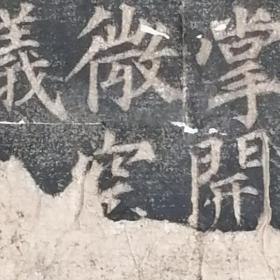 掌開
微空
義